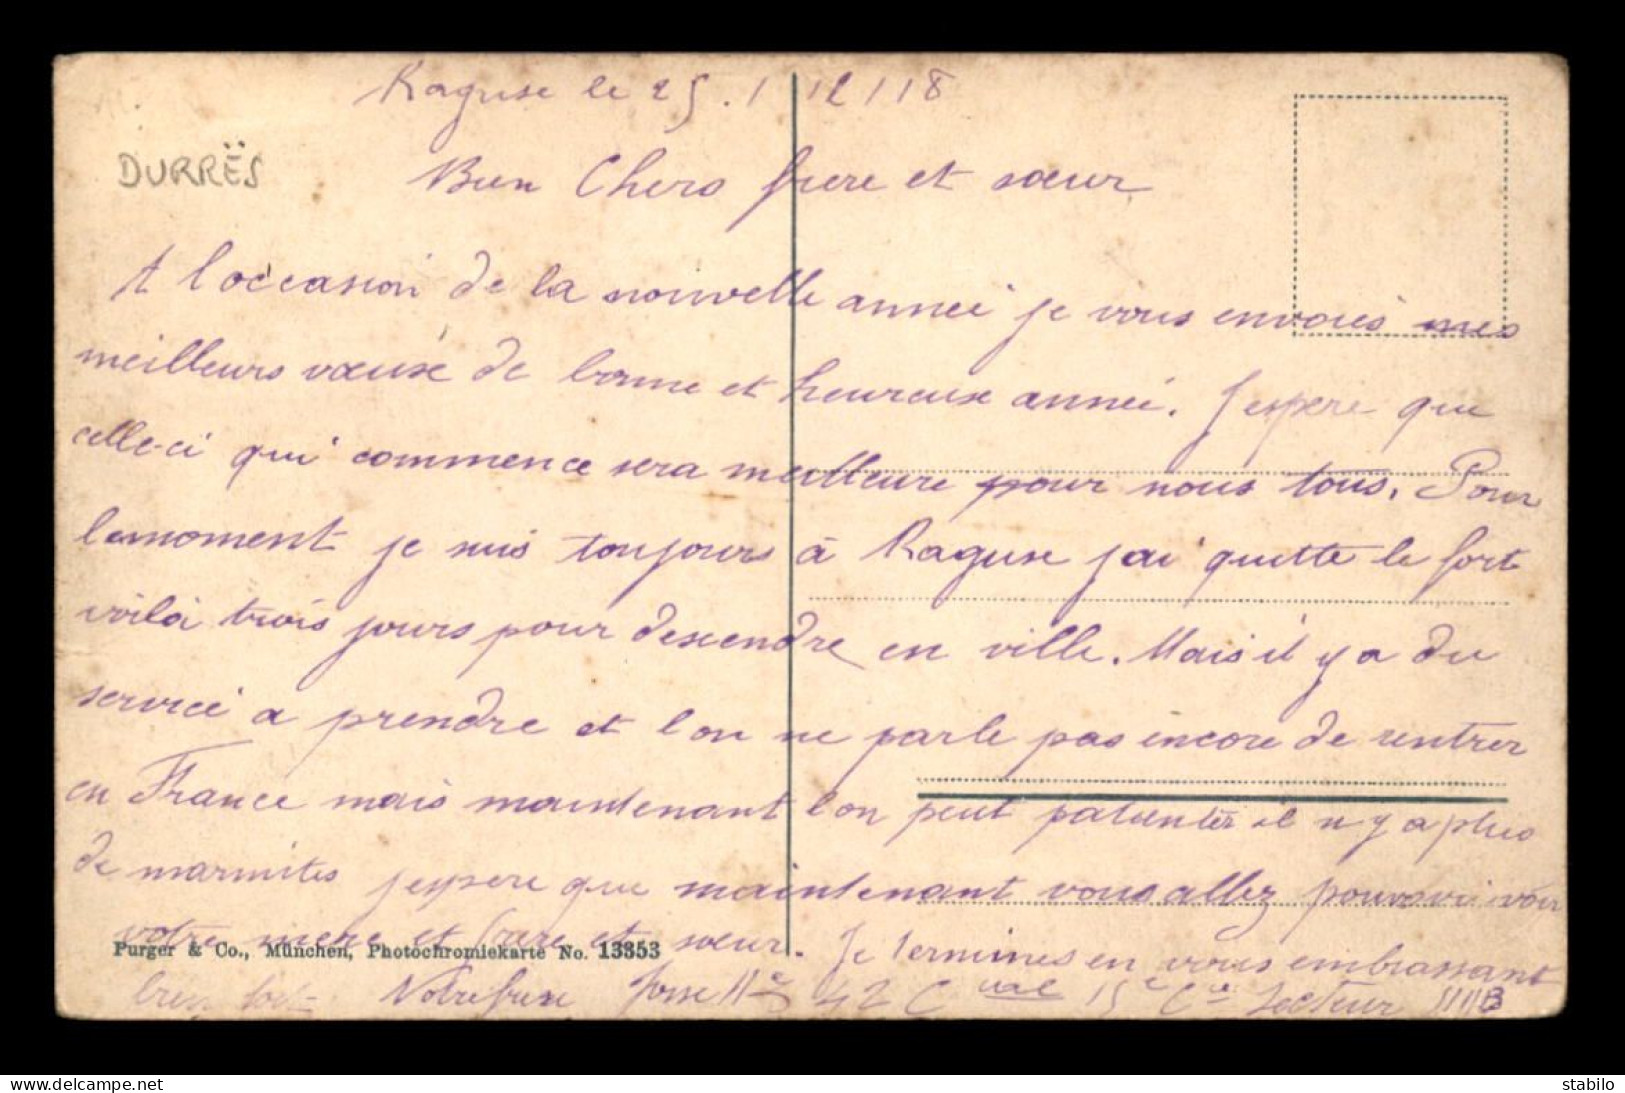 Raguse le 25.1 12118
DURRËS
Bien Chers frere et sœur
A l'occasion de la nouvelle année je vous envoies mes
meilleurs vœuse de bonne et heureuse année. J'espere que
celle-ci qui commence sera meilleure pour nous tous. Pour
lemoment je suis toujours à Raguse j'ai quitte le fort
voilà trois jours pour desendre en ville. Mais il y a du
service a prendre et l'on ne parle pas encore de rentrer
en France mais maintenant l'on peut patienter il n y a plus
de marmites j'espere que maintenant vous allez pouvoir voir
votre mere et frere et sœur. Je termines en vous embrassant
Purger & Co., München, Photochromiekarte No. 13353
Notre frere 42 C 15e Cie Secteur
delcampe.net
stabilo